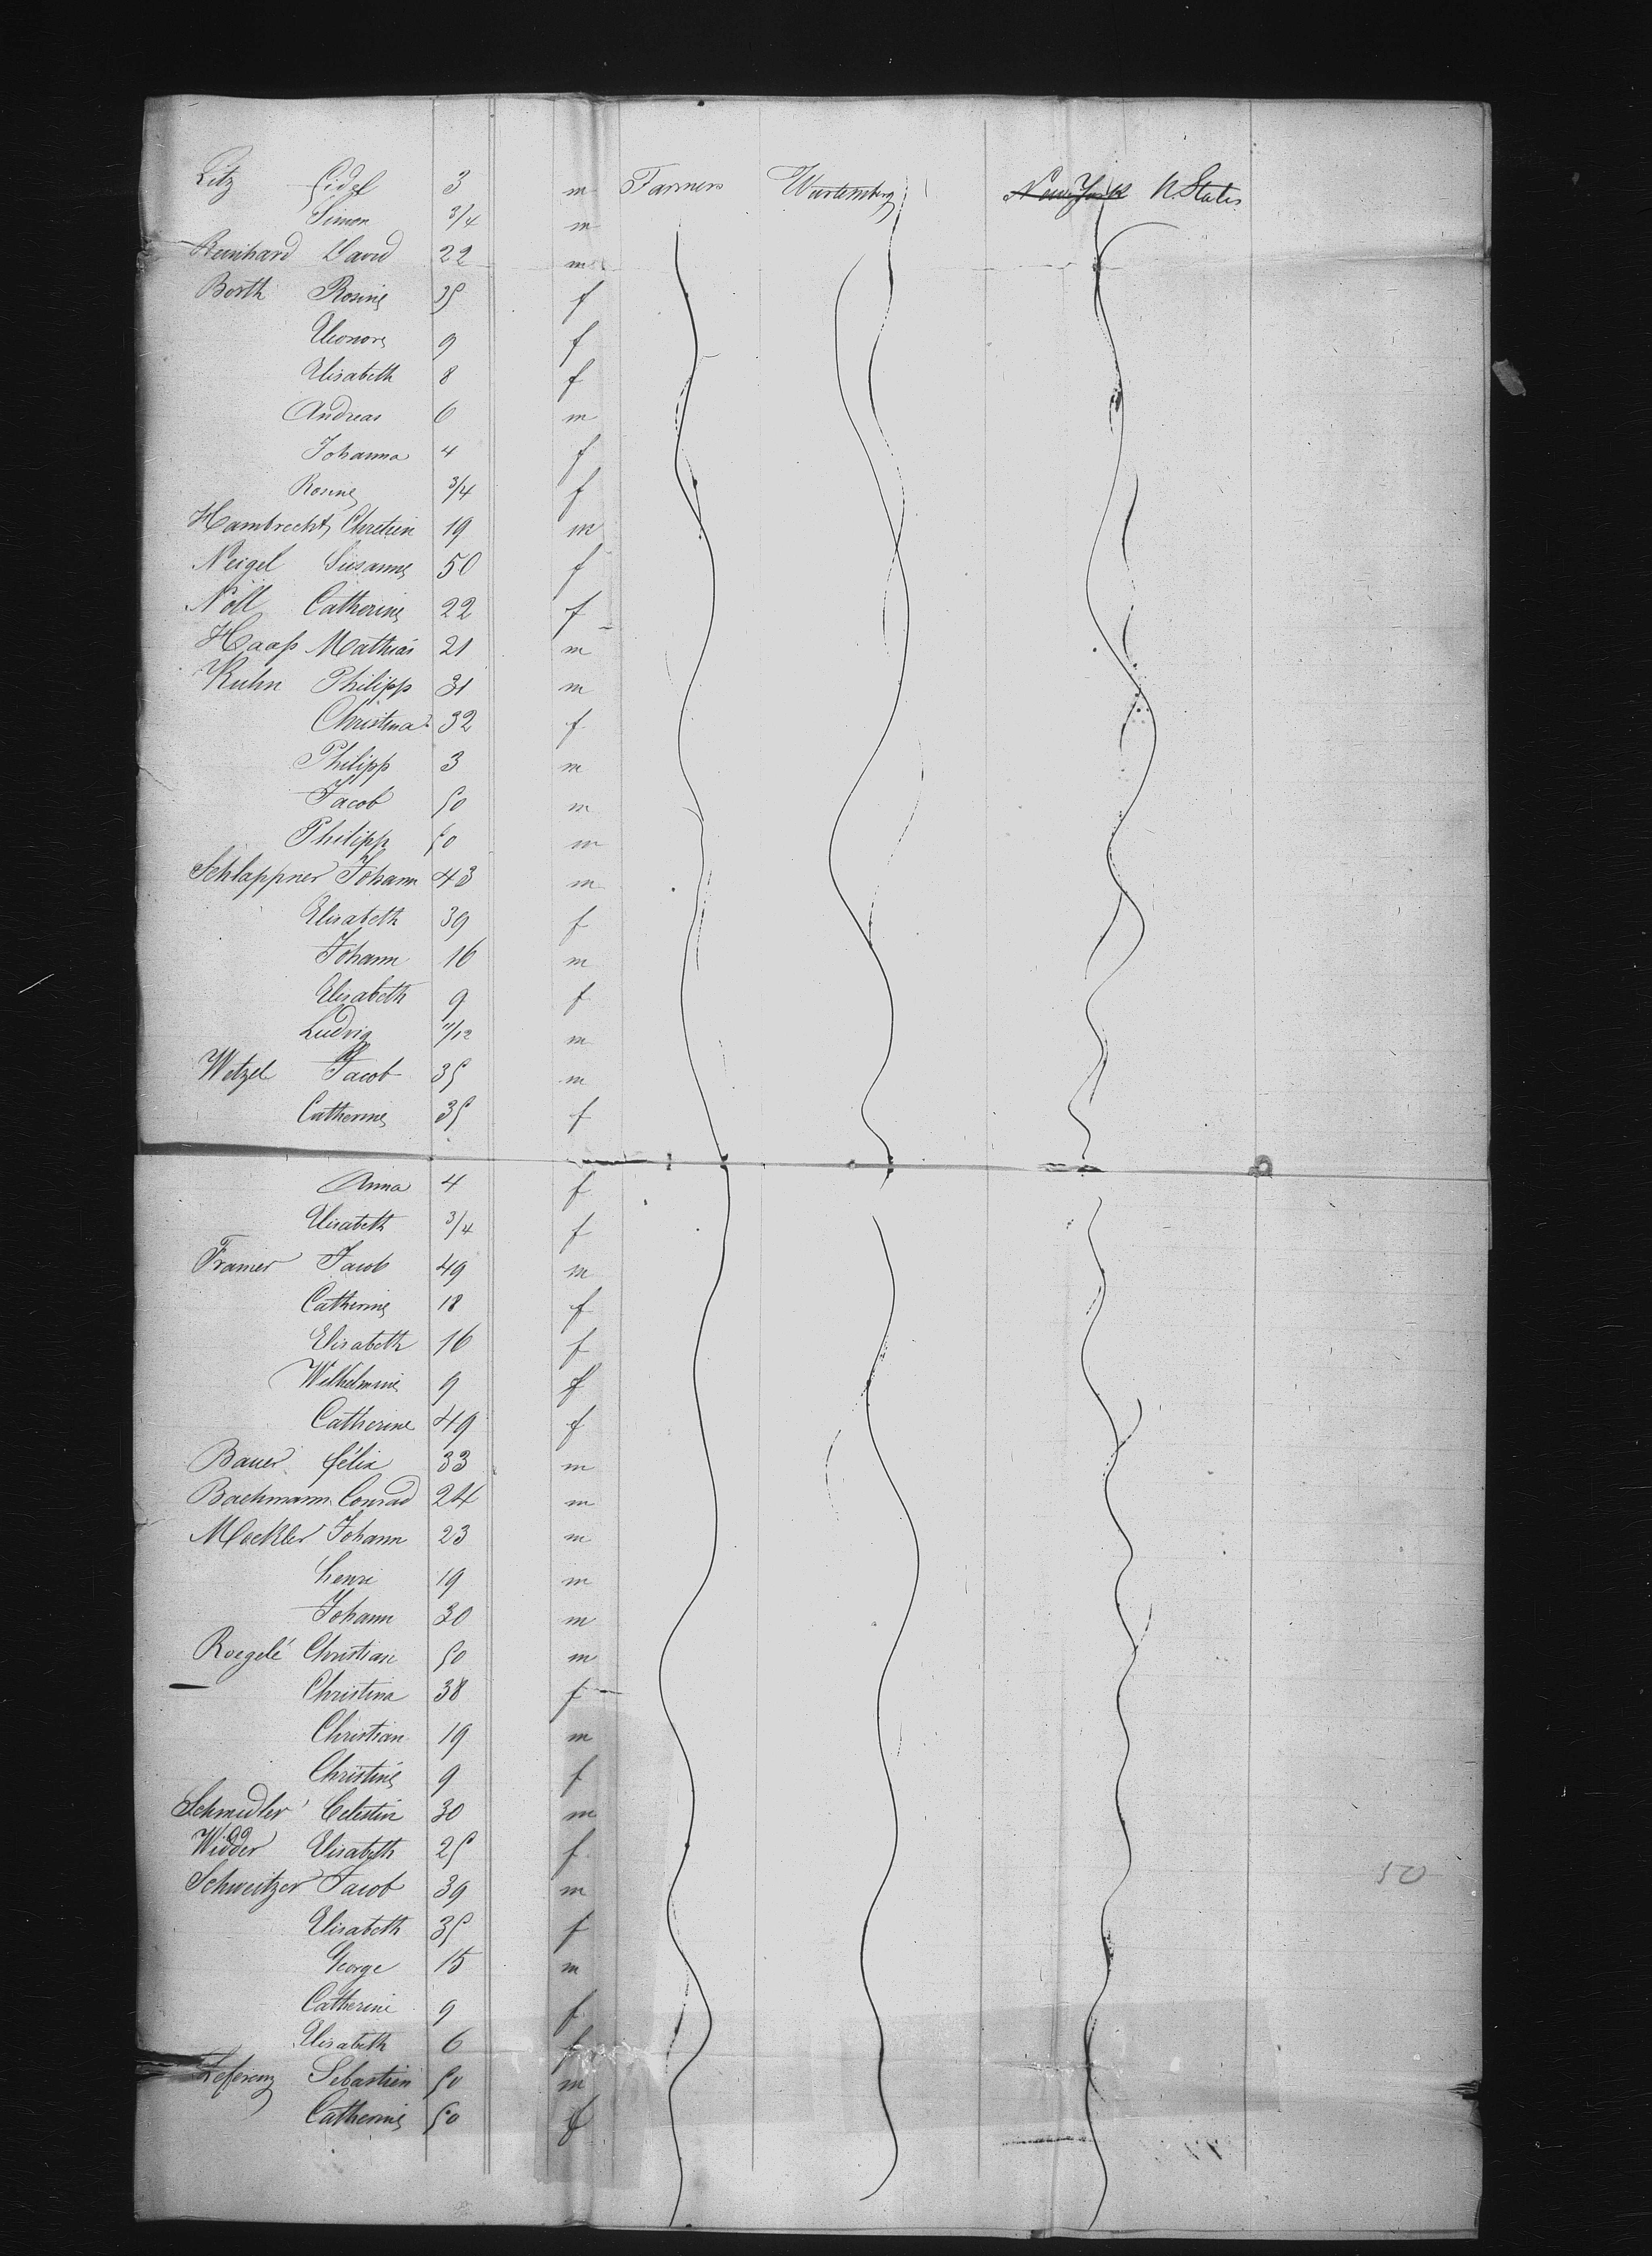 Litz Fidel 3 m Farmers Wurtemberg New York U. States
Simon 3/4 m
Reinhard David 22 m
Borth Rosine 35 f
Eleonore 9 f
Elisabeth 8 f
Andreas 6 m
Johanna 4 f
Rosine 3/4 f
Hambrecht, Chretien 19 m
Neigel Susanne 50 f
Nöll Catherine 22 f
Haaß Mathias 21 m
Kuhn Philipp 31 m
Christina 32 f
Philipp 3 m
Jacob 50 m
Philipp 50 m
Schlappner Johann 43 m
Elisabeth 39 f
Johann 16 m
Elisabeth 9 f
Ludvig 11/12 m
Wetzel Jacob 35 m
Catherine 35 f
Anna 4 f
Elisabeth 3/4 f
Framer Jacob 49 m
Catherine 18 f
Elisabeth 16 f
Wilhelmine 9 f
Catherine 49 f
Bauer félix 33 m
Bachmann Conrad 24 m
Mockler Johann 23 m
henri 19 m
Johann 30 m
Roegelé Christian 50 m
Christina 38 f
Christian 19 m
Christine 9 f
Schmidler Celestin 30 m
Widder Elisabeth 25 f
Schweitzer Jacob 39 m
Elisabeth 35 f
George 15 m
50
Catherine 9 f
Elisabeth 6 f
Leferenz Sebastien 50 m
Catherine 50 f